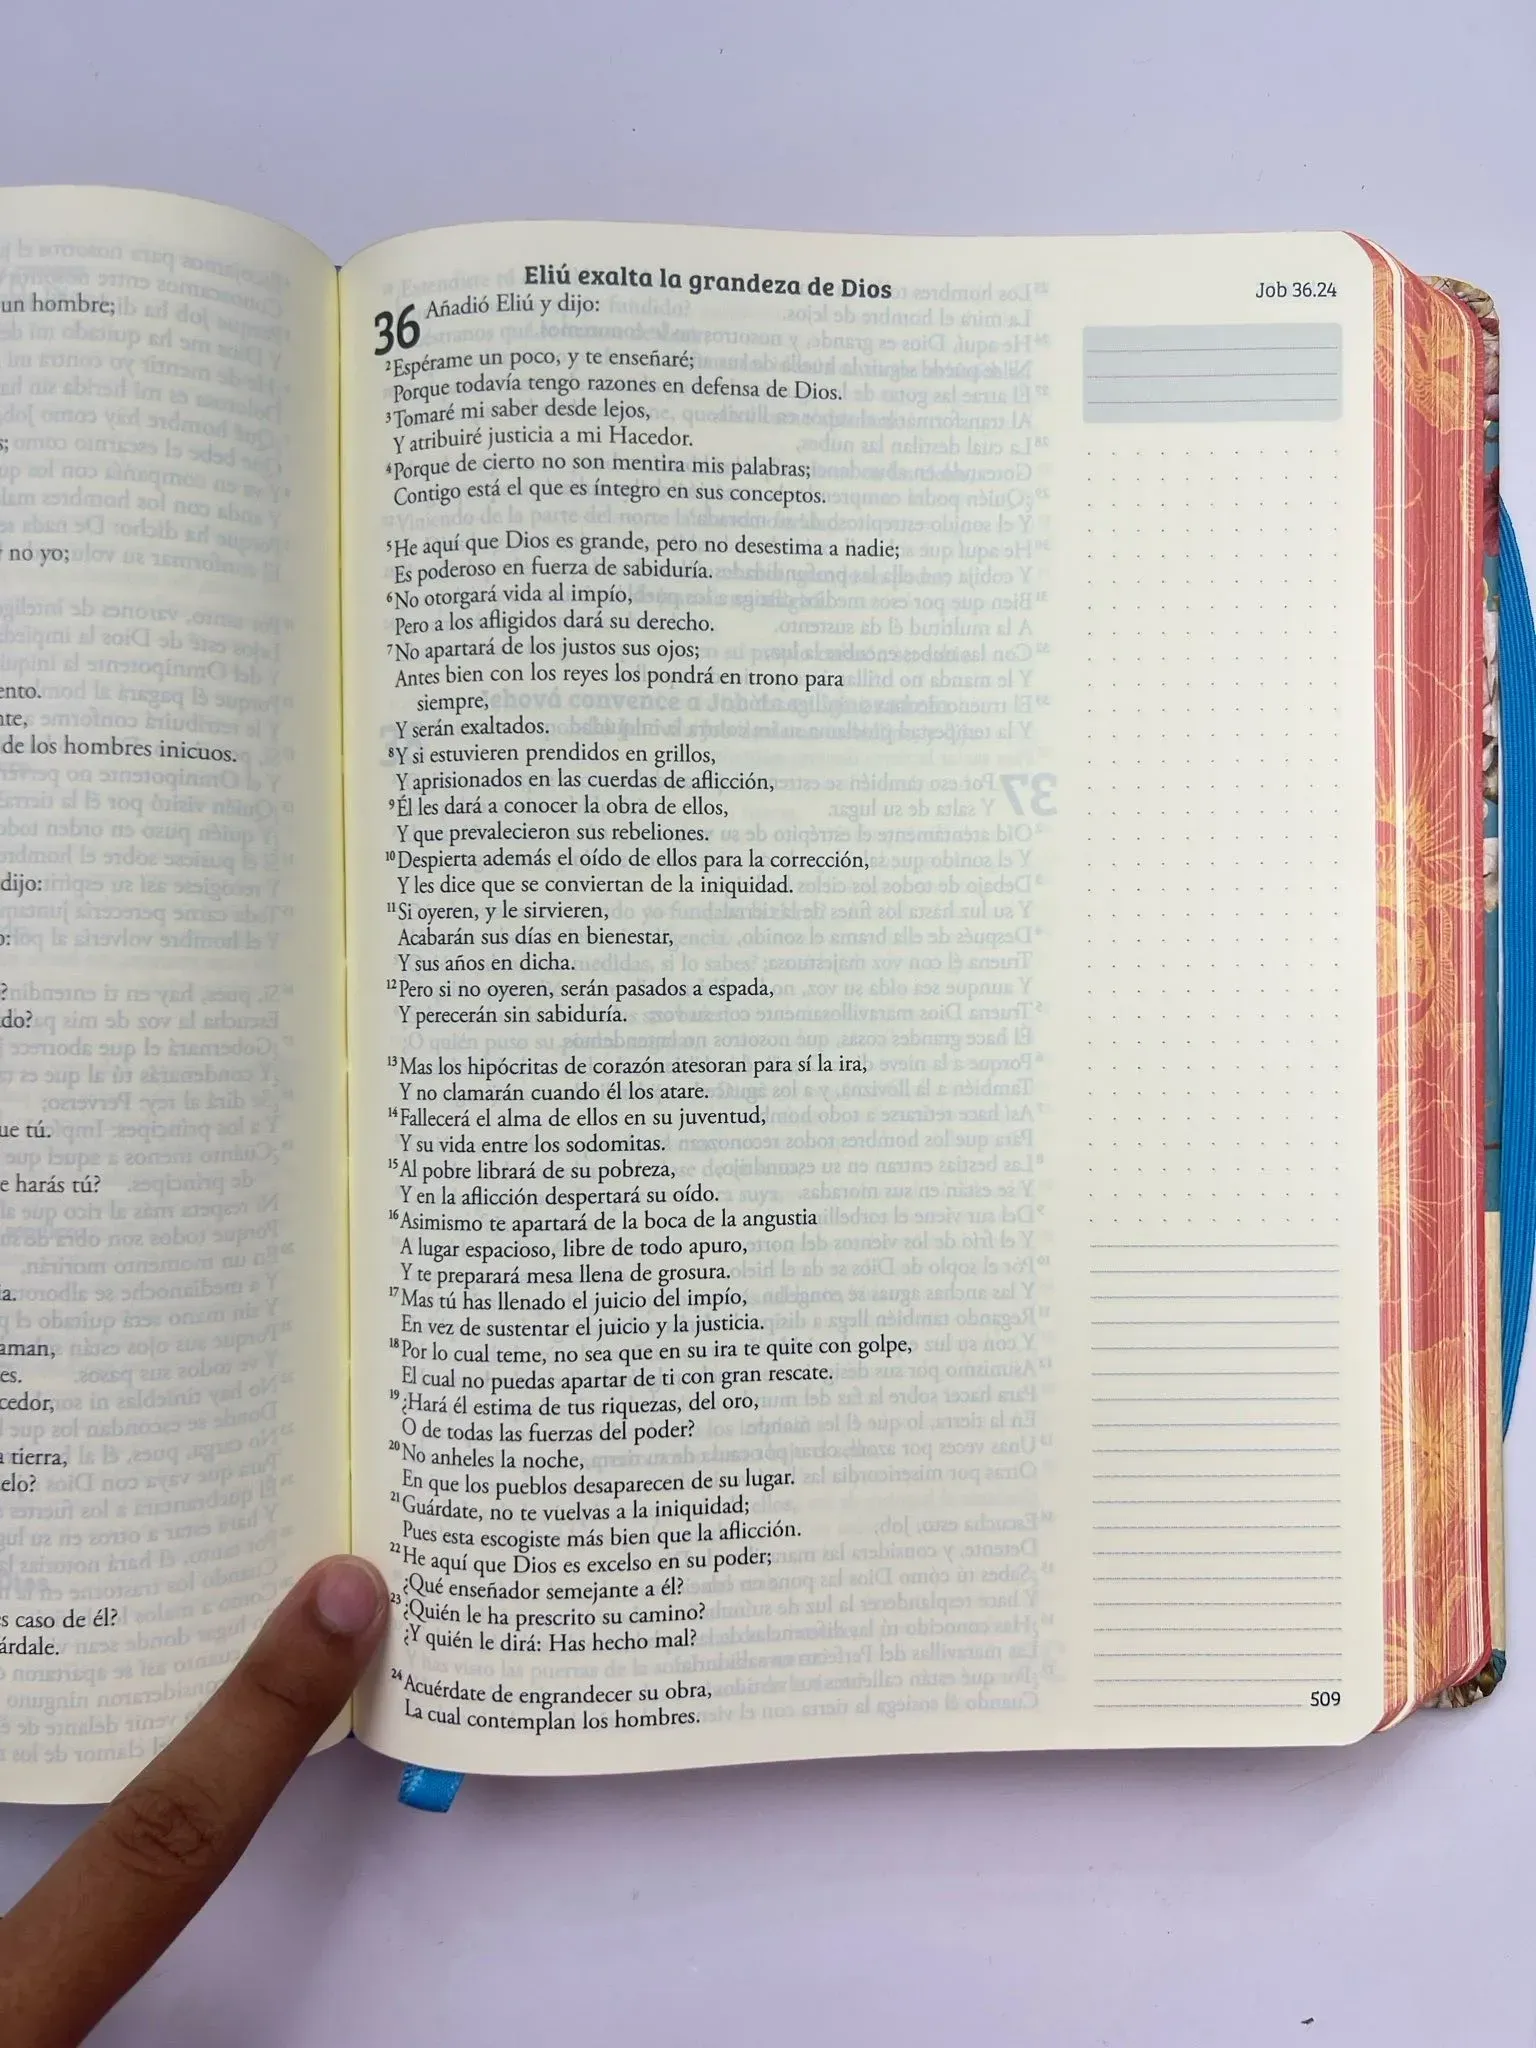 un hombre;
no yo;
ento.
nte,
de los hombres inicuos.
dijo:
do?
ue tú.
e harás tú?
ia.
aman,
es.
cedor,
a tierra,
elo?
s caso de él?
árdale.
Eliú exalta la grandeza de Dios
Job 36.24
36 Añadió Eliú y dijo:
2 Espérame un poco, y te enseñaré;
Porque todavía tengo razones en defensa de Dios.
3 Tomaré mi saber desde lejos,
Y atribuiré justicia a mi Hacedor.
4 Porque de cierto no son mentira mis palabras;
Contigo está el que es íntegro en sus conceptos.
5 He aquí que Dios es grande, pero no desestima a nadie;
Es poderoso en fuerza de sabiduría.
6 No otorgará vida al impío,
Pero a los afligidos dará su derecho.
7 No apartará de los justos sus ojos;
Antes bien con los reyes los pondrá en trono para
siempre,
Y serán exaltados.
8 Y si estuvieren prendidos en grillos,
Y aprisionados en las cuerdas de aflicción,
9 Él les dará a conocer la obra de ellos,
Y que prevalecieron sus rebeliones.
10 Despierta además el oído de ellos para la corrección,
Y les dice que se conviertan de la iniquidad.
11 Si oyeren, y le sirvieren,
Acabarán sus días en bienestar,
Y sus años en dicha.
12 Pero si no oyeren, serán pasados a espada,
Y perecerán sin sabiduría.
13 Mas los hipócritas de corazón atesoran para sí la ira,
Y no clamarán cuando él los atare.
14 Fallecerá el alma de ellos en su juventud,
Y su vida entre los sodomitas.
15 Al pobre librará de su pobreza,
Y en la aflicción despertará su oído.
16 Asimismo te apartará de la boca de la angustia
A lugar espacioso, libre de todo apuro,
Y te preparará mesa llena de grosura.
17 Mas tú has llenado el juicio del impío,
En vez de sustentar el juicio y la justicia.
18 Por lo cual teme, no sea que en su ira te quite con golpe,
El cual no puedas apartar de ti con gran rescate.
19 ¿Hará él estima de tus riquezas, del oro,
O de todas las fuerzas del poder?
20 No anheles la noche,
En que los pueblos desaparecen de su lugar.
21 Guárdate, no te vuelvas a la iniquidad;
Pues esta escogiste más bien que la aflicción.
22 He aquí que Dios es excelso en su poder;
¿Qué enseñador semejante a él?
23 ¿Quién le ha prescrito su camino?
¿Y quién le dirá: Has hecho mal?
24 Acuérdate de engrandecer su obra,
La cual contemplan los hombres.
509